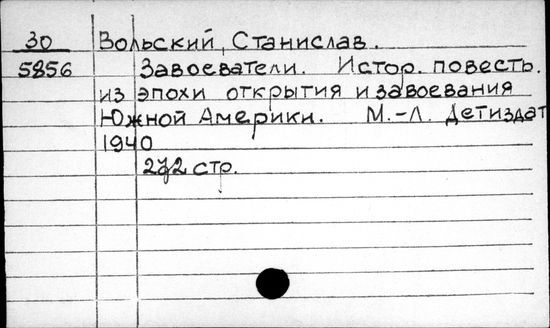 30 Вольский, Станислав.
5856 Завоеватели. Истор. повесть.
из эпохи открытия и завоевания
Южной Америки. М.-Л. Детиздат
1940
272 стр.